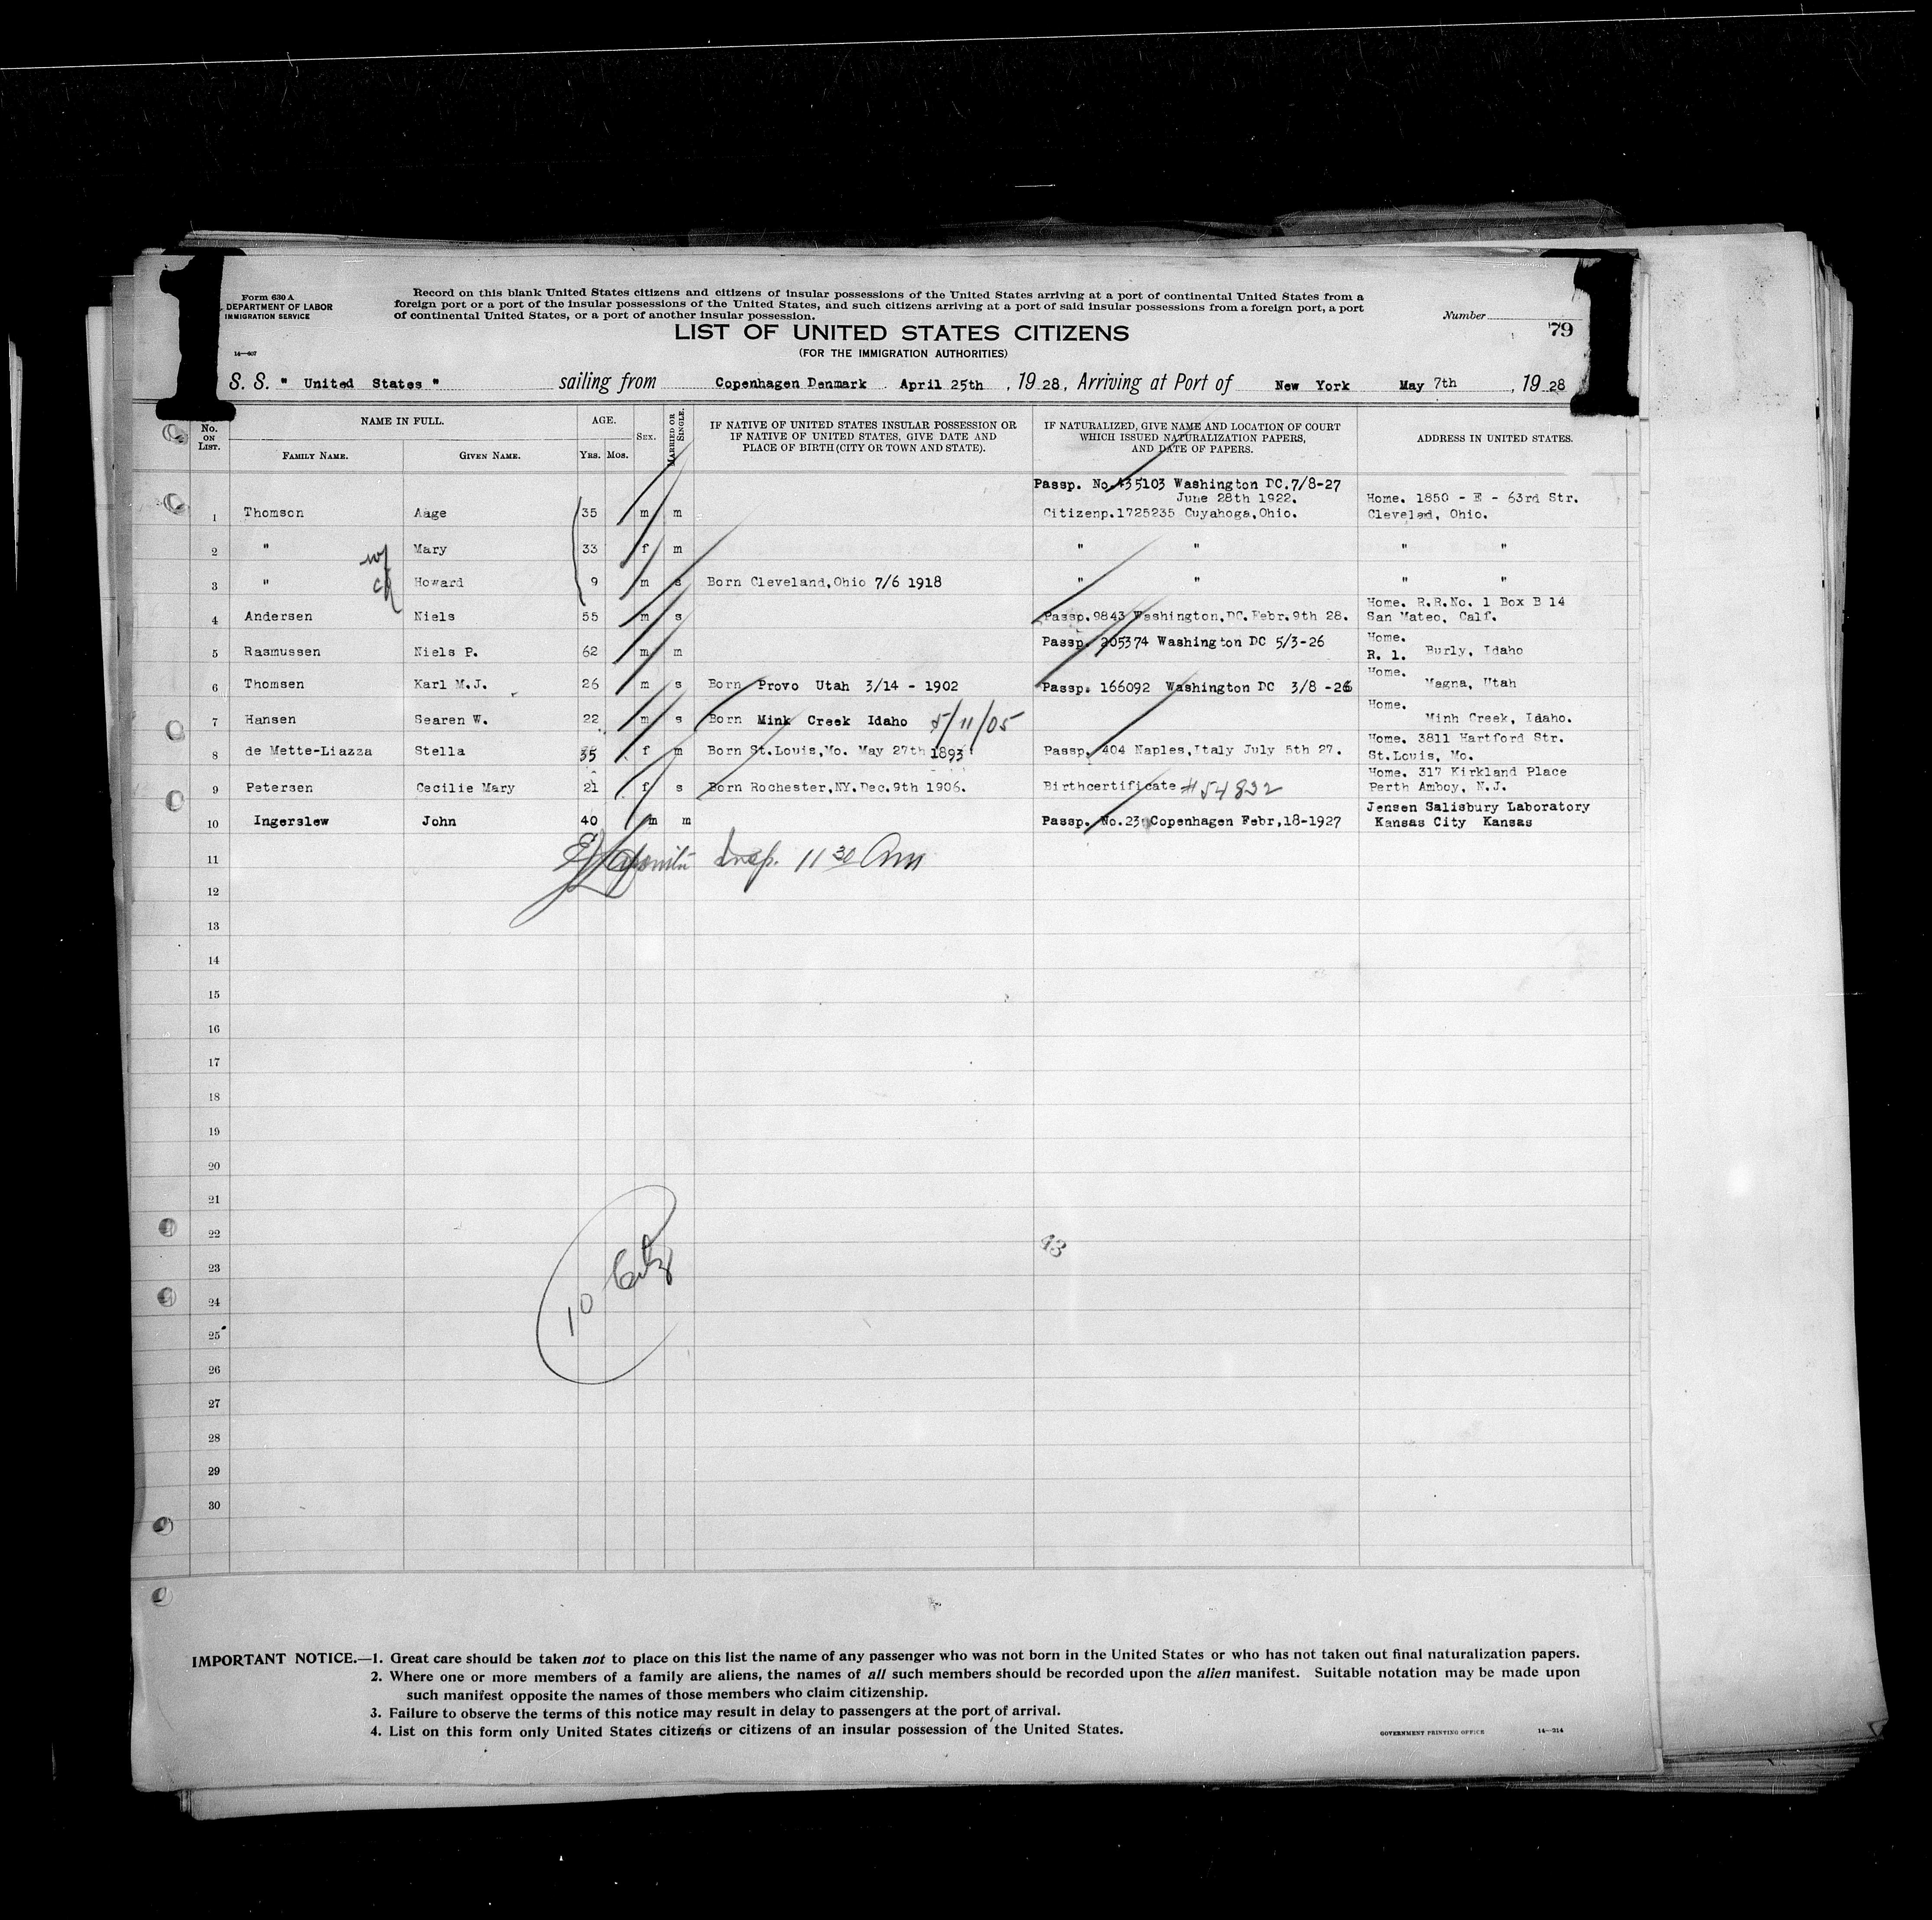 Form 630 A
DEPARTMENT OF LABOR
IMMIGRATION SERVICE
14—407
Record on this blank United States citizens and citizens of insular possessions of the United States arriving at a port of continental United States from a
foreign port or a port of the insular possessions of the United States, and such citizens arriving at a port of said insular possessions from a foreign port, a port
of continental United States, or a port of another insular possession.
Number
79
LIST OF UNITED STATES CITIZENS
(FOR THE IMMIGRATION AUTHORITIES)
S. S. " United States " sailing from Copenhagen Denmark April 25th , 19 28, Arriving at Port of New York May 7th , 19 28
No. ON LIST. NAME IN FULL. FAMILY NAME. GIVEN NAME. AGE. YRS. MOS. SEX. MARRIED OR SINGLE. IF NATIVE OF UNITED STATES INSULAR POSSESSION OR IF NATIVE OF UNITED STATES, GIVE DATE AND PLACE OF BIRTH (CITY OR TOWN AND STATE). IF NATURALIZED, GIVE NAME AND LOCATION OF COURT WHICH ISSUED NATURALIZATION PAPERS, AND DATE OF PAPERS. ADDRESS IN UNITED STATES.
Passp. No.435103 Washington DC.7/8-27
June 28th 1922. Home. 1850 - E - 63rd Str.
1 Thomson Aage 35 m m Citizenp.1725235 Cuyahoga,Ohio. Cleveland, Ohio.
2 " wf Mary 33 f m " " " "
3 " ch Howard 9 m s Born Cleveland,Ohio 7/6 1918 " " " "
Home. R.R.No. 1 Box B 14
4 Andersen Niels 55 m s Passp.9843 Washington,DC.Febr.9th 28. San Mateo, Calf.
Home.
5 Rasmussen Niels P. 62 m m Passp. 205374 Washington DC 5/3-26 R. 1. Burly, Idaho
Home.
6 Thomsen Karl M.J. 26 m s Born Provo Utah 3/14 - 1902 Passp. 166092 Washington DC 3/8 -26 Magna, Utah
Home.
7 Hansen Searen W. 22 m s Born Mink Creek Idaho 5/11/05 Minh Creek, Idaho.
Home. 3811 Hartford Str.
8 de Mette-Liazza Stella 35 f m Born St.Louis,Mo. May 27th 1893 Passp. 404 Naples,Italy July 5th 27. St.Louis, Mo.
Home. 317 Kirkland Place
9 Petersen Cecilie Mary 21 f s Born Rochester,NY.Dec.9th 1906. Birthcertificate #54822 Perth Amboy, N.J.
Jensen Salisbury Laboratory
10 Ingerslew John 40 m m Passp. No.23 Copenhagen Febr,18-1927 Kansas City Kansas
11 Insp. 11 30 Am
12
13
14
15
16
17
18
19
20
21
22
43
23
10 Citz
24
25
26
27
28
29
30
IMPORTANT NOTICE.—1. Great care should be taken not to place on this list the name of any passenger who was not born in the United States or who has not taken out final naturalization papers.
2. Where one or more members of a family are aliens, the names of all such members should be recorded upon the alien manifest. Suitable notation may be made upon
such manifest opposite the names of those members who claim citizenship.
3. Failure to observe the terms of this notice may result in delay to passengers at the port of arrival.
4. List on this form only United States citizens or citizens of an insular possession of the United States.
GOVERNMENT PRINTING OFFICE 14—314